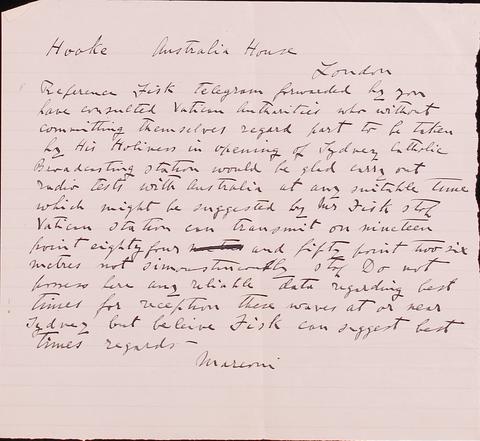 Hooke Australia House
London
Reference Fisk telegram forwarded by you
have consulted Vatican Authorities who without
committing themselves regard part to be taken
by His Holiness in opening of Sydney Catholic
Broadcasting station would be glad carry out
radio tests with Australia at any suitable time
which might be suggested by Mr Fisk stop
Vatican station can transmit on nineteen
point eighty four and fifty point two six
metres not simoustneously stop Do not
possess here any reliable data regarding best
times for reception these waves at or near
Sydney but beleive Fisk can suggest best
times regards
Marconi